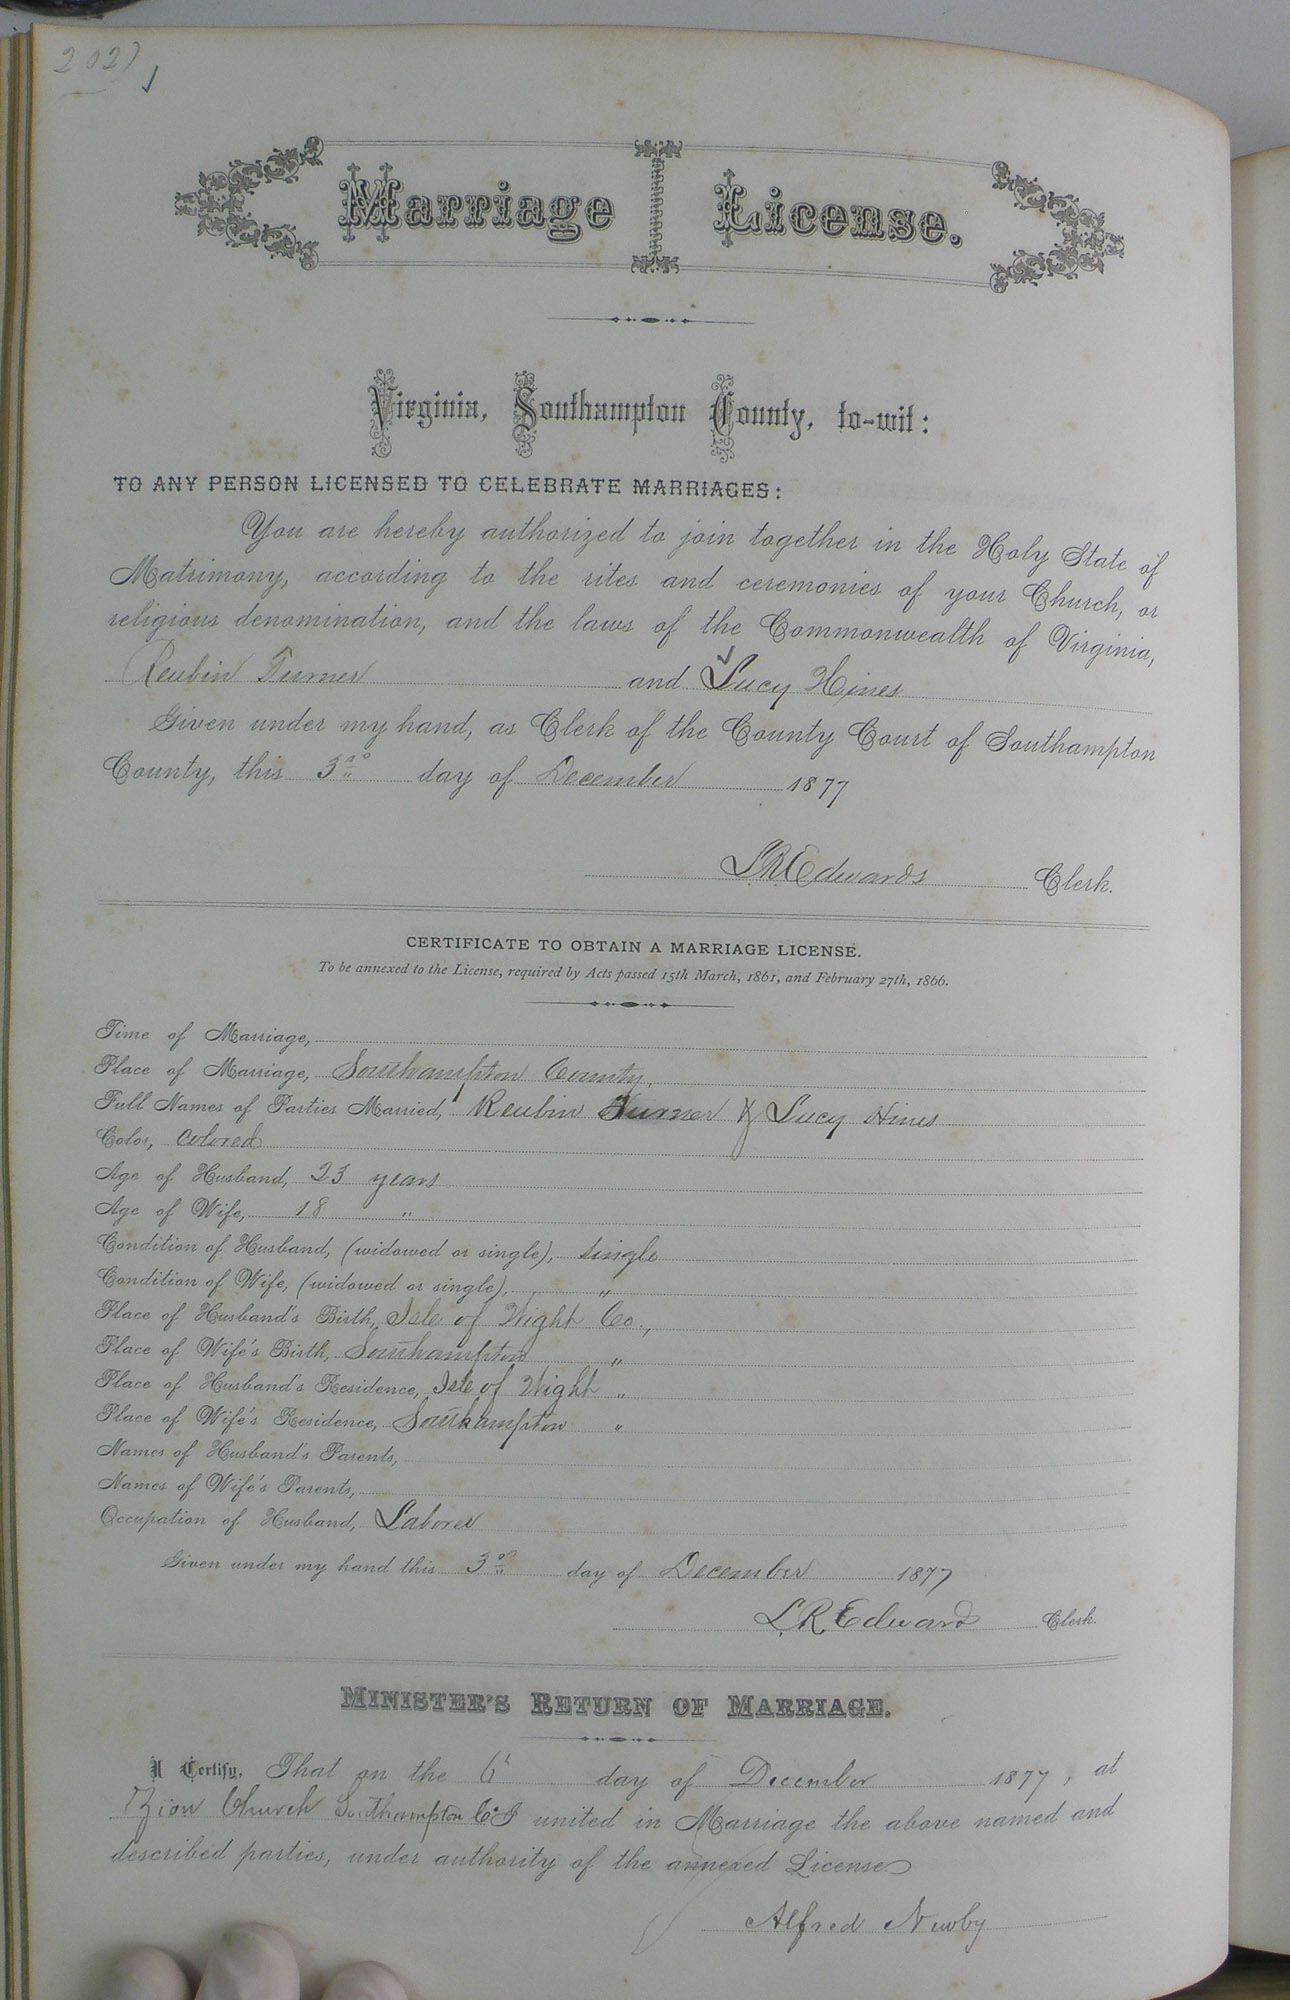 202)
Marriage License.
Virginia, Southampton County, to-wit:
TO ANY PERSON LICENSED TO CELEBRATE MARRIAGES:
You are hereby authorized to join together in the Holy State of
Matrimony, according to the rites and ceremonies of your Church, or
religious denomination, and the laws of the Commonwealth of Virginia,
Reubin Turner and Lucy Hines
Given under my hand, as Clerk of the County Court of Southampton
County, this 3rd day of December 1877
L.R. Edwards Clerk.
CERTIFICATE TO OBTAIN A MARRIAGE LICENSE.
To be annexed to the License, required by Acts passed 15th March, 1861, and February 27th, 1866.
Time of Marriage,
Place of Marriage, Southampton County,
Full Names of Parties Married, Reubin Turner & Lucy Hines
Color, Colored
Age of Husband, 23 years
Age of Wife, 18 "
Condition of Husband, (widowed or single), Single
Condition of Wife, (widowed or single), "
Place of Husband's Birth, Isle of Wight Co.,
Place of Wife's Birth, Southampton "
Place of Husband's Residence, Isle of Wight "
Place of Wife's Residence, Southampton "
Names of Husband's Parents,
Names of Wife's Parents,
Occupation of Husband, Laborer
Given under my hand this 3rd day of December 1877
L.R. Edwards Clerk.
MINISTER'S RETURN OF MARRIAGE.
I Certify, That on the 6 day of December 1877, at
Zion Church Southampton Co I united in Marriage the above named and
described parties, under authority of the annexed License
Alfred Newby